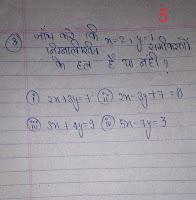 5
③ जाँच करे कि x=2, y=1
निम्नलिखित समीकरणों
के हल है या नहीं?
(i) 2x+3y=7 (ii) 2x-3y+7=8
(iii) 3x+4y=9 (iv) 5x-7y=3